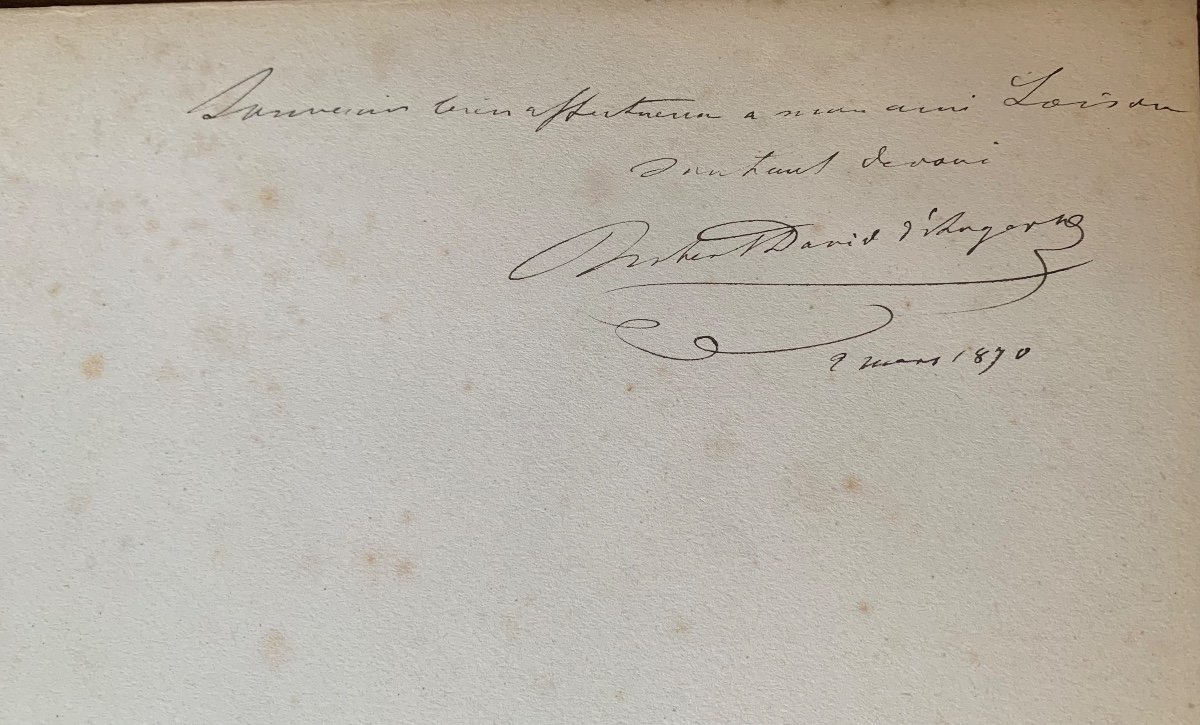 Souvenir bien affectueux a mon ami Loison
son tout devoué
Robert David d'Angers
2 mars 1870